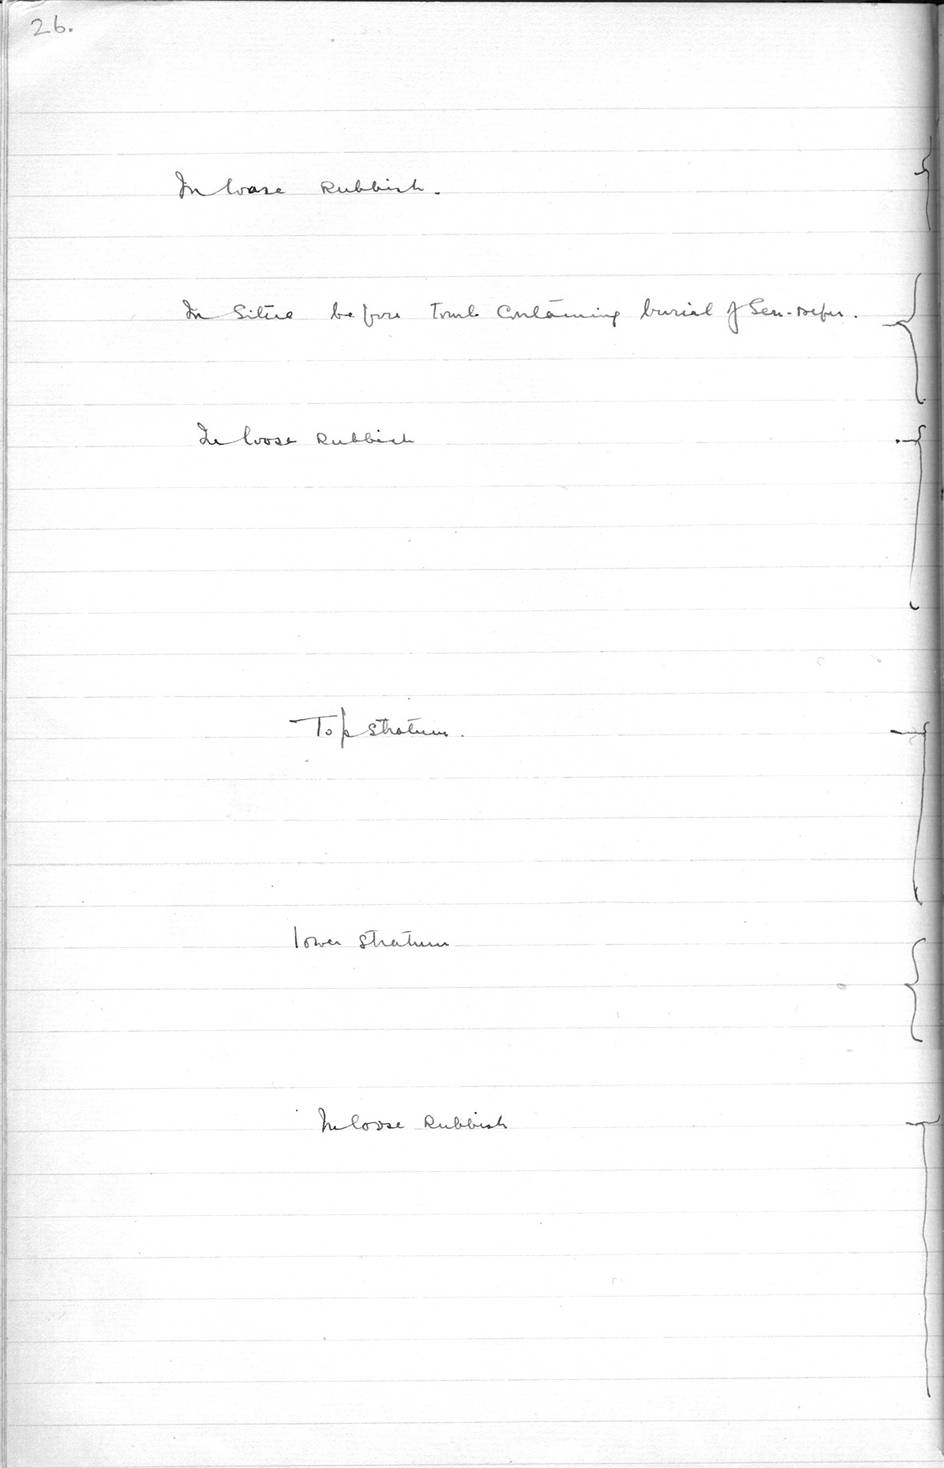 26.
In loose Rubbish.
In Situe before Tomb Containing burial of Sen-nefer.
In loose Rubbish
Top stratum.
lower stratum
In loose Rubbish